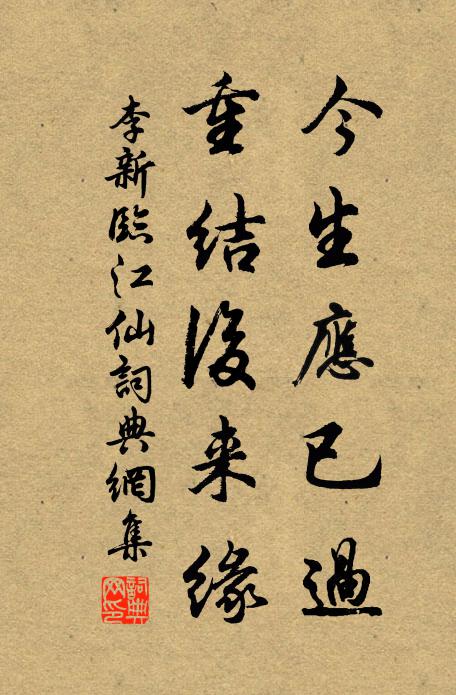 今生應已過
重結後来緣
李新臨江仙詞典網集
詞典网印